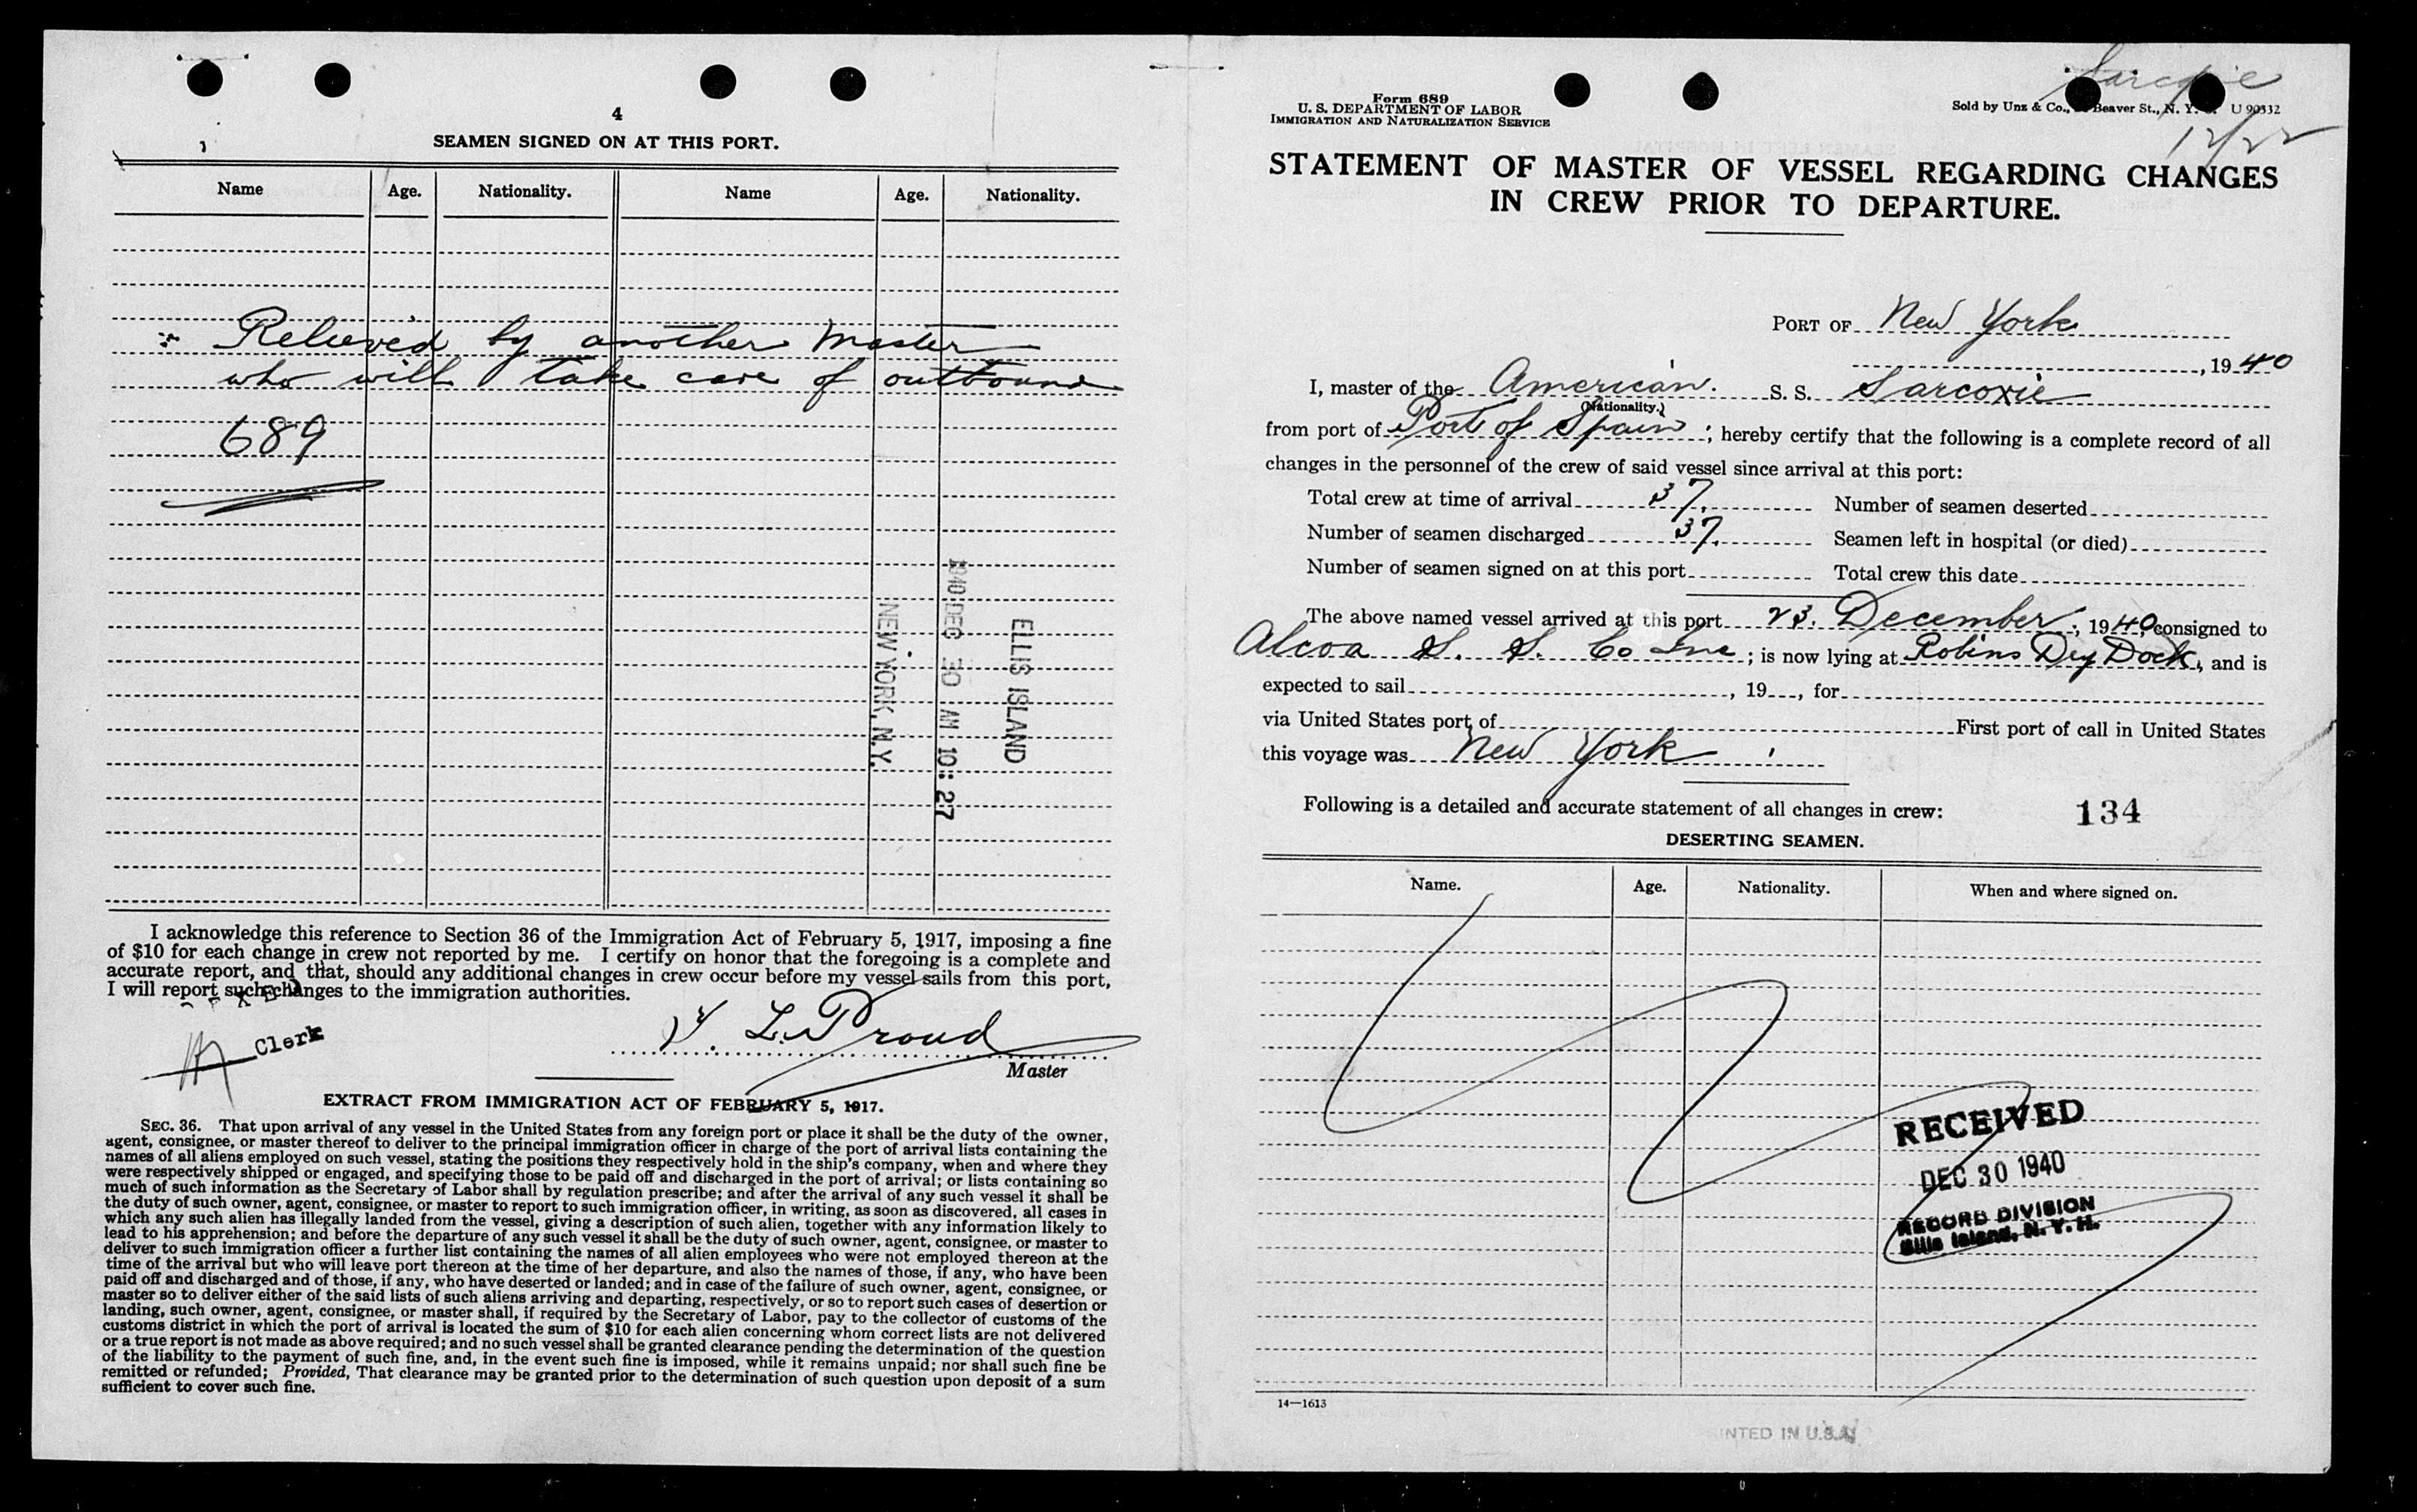 4
SEAMEN SIGNED ON AT THIS PORT.
Name Age. Nationality. Name Age. Nationality.
Relieved by another Master
who will take care of outbound
689
ELLIS ISLAND
1940 DEC 30 AM 10:27
NEW YORK, N.Y.
I acknowledge this reference to Section 36 of the Immigration Act of February 5, 1917, imposing a fine
of $10 for each change in crew not reported by me. I certify on honor that the foregoing is a complete and
accurate report, and that, should any additional changes in crew occur before my vessel sails from this port,
I will report such changes to the immigration authorities.
Clerk
L. Proud
Master
EXTRACT FROM IMMIGRATION ACT OF FEBRUARY 5, 1917.
SEC. 36. That upon arrival of any vessel in the United States from any foreign port or place it shall be the duty of the owner,
agent, consignee, or master thereof to deliver to the principal immigration officer in charge of the port of arrival lists containing the
names of all aliens employed on such vessel, stating the positions they respectively hold in the ship's company, when and where they
were respectively shipped or engaged, and specifying those to be paid off and discharged in the port of arrival; or lists containing so
much of such information as the Secretary of Labor shall by regulation prescribe; and after the arrival of any such vessel it shall be
the duty of such owner, agent, consignee, or master to report to such immigration officer, in writing, as soon as discovered, all cases in
which any such alien has illegally landed from the vessel, giving a description of such alien, together with any information likely to
lead to his apprehension; and before the departure of any such vessel it shall be the duty of such owner, agent, consignee, or master to
deliver to such immigration officer a further list containing the names of all alien employees who were not employed thereon at the
time of the arrival but who will leave port thereon at the time of her departure, and also the names of those, if any, who have been
paid off and discharged and of those, if any, who have deserted or landed; and in case of the failure of such owner, agent, consignee, or
master so to deliver either of the said lists of such aliens arriving and departing, respectively, or so to report such cases of desertion or
landing, such owner, agent, consignee, or master shall, if required by the Secretary of Labor, pay to the collector of customs of the
customs district in which the port of arrival is located the sum of $10 for each alien concerning whom correct lists are not delivered
or a true report is not made as above required; and no such vessel shall be granted clearance pending the determination of the question
of the liability to the payment of such fine, and, in the event such fine is imposed, while it remains unpaid; nor shall such fine be
remitted or refunded; Provided, That clearance may be granted prior to the determination of such question upon deposit of a sum
sufficient to cover such fine.
Sarcoxie
12/22
Form 689
U. S. DEPARTMENT OF LABOR
IMMIGRATION AND NATURALIZATION SERVICE
Sold by Unz & Co., Beaver St., N. Y. U 90332
STATEMENT OF MASTER OF VESSEL REGARDING CHANGES
IN CREW PRIOR TO DEPARTURE.
PORT OF New York
, 1940
I, master of the American S. S. Sarcoxie
(Nationality.)
from port of Port of Spain; hereby certify that the following is a complete record of all
changes in the personnel of the crew of said vessel since arrival at this port:
Total crew at time of arrival 37. Number of seamen deserted
Number of seamen discharged 37. Seamen left in hospital (or died)
Number of seamen signed on at this port Total crew this date
The above named vessel arrived at this port 23. December, 1940, consigned to
Alcoa S. S. Co Inc; is now lying at Robins Dry Dock, and is
expected to sail , 19 , for
via United States port of First port of call in United States
this voyage was New York
Following is a detailed and accurate statement of all changes in crew: 134
DESERTING SEAMEN.
Name. Age. Nationality. When and where signed on.
RECEIVED
DEC 30 1940
RECORD DIVISION
Ellis Island, N. Y. H.
14—1613
NTED IN U.S.A.